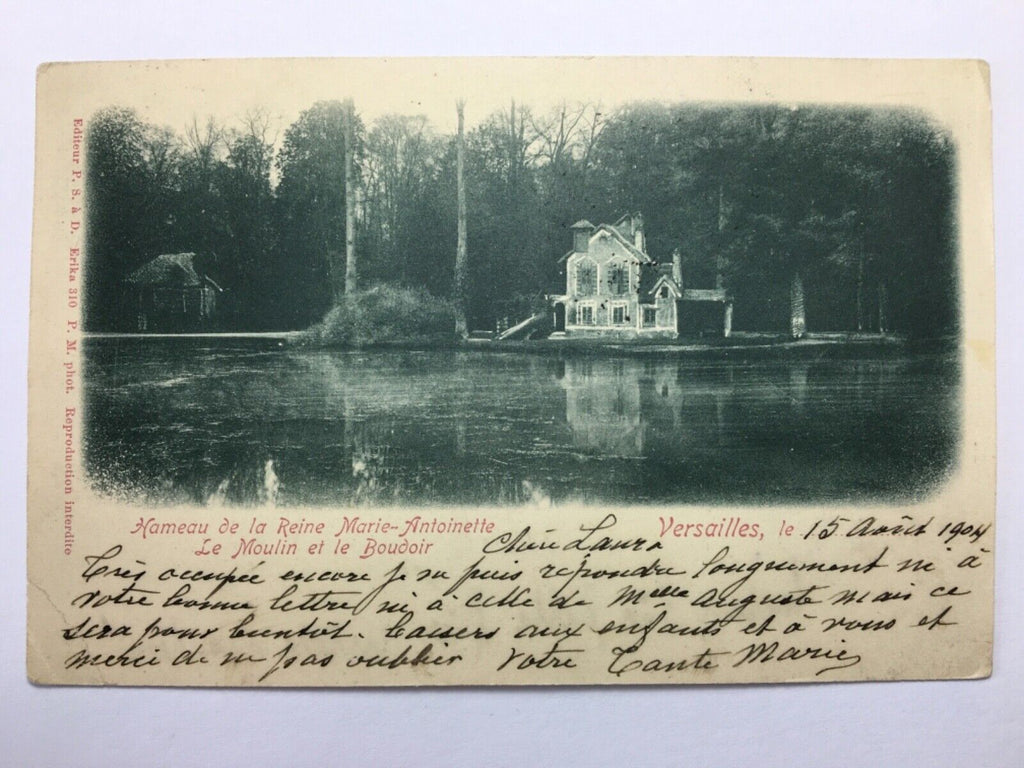 Editeur P. S. à D. Erika 310 P. M. phot. Reproduction interdite
Hameau de la Reine Marie-Antoinette
Le Moulin et le Boudoir
Versailles, le 15 Août 1904
Chère Laura
Très occupée encore je ne puis répondre longuement ni à
votre bonne lettre, ni à celle de Melle Auguste mais ce
sera pour bientôt. baisers aux enfants et à vous et
merci de ne pas oublier Votre Tante Marie